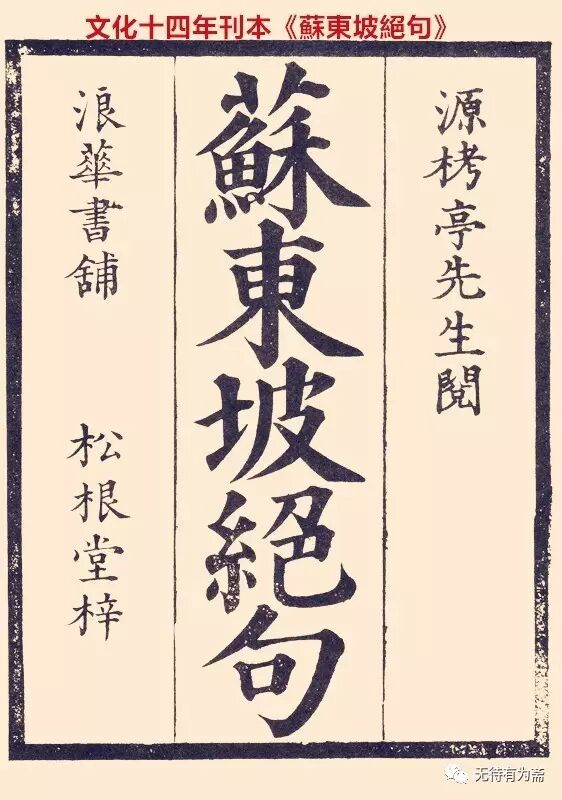 文化十四年刊本《蘇東坡絕句》
源栲亭先生閱
蘇東坡絕句
浪華書舖 松根堂梓
无待有为斋